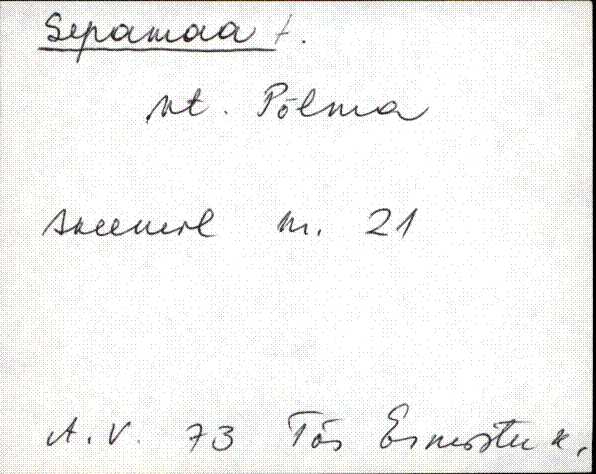 Sepamaa t.
nt. Põlma
skeemil nr. 21
A.V. 73 Tõs Ermistu k.